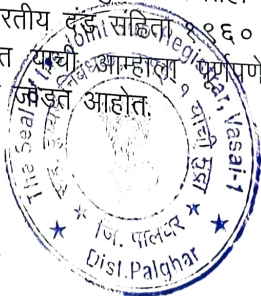 रतीय दंड संहिता १८६०
त याची आम्हाला पूर्णपणे
जोडत आहोत.
The Seal of Joint Sub Registrar, Vasai-1
सह दुय्यम निबंधक वसई १ यांची मुद्रा
जि. पालघर
Dist.Palghar